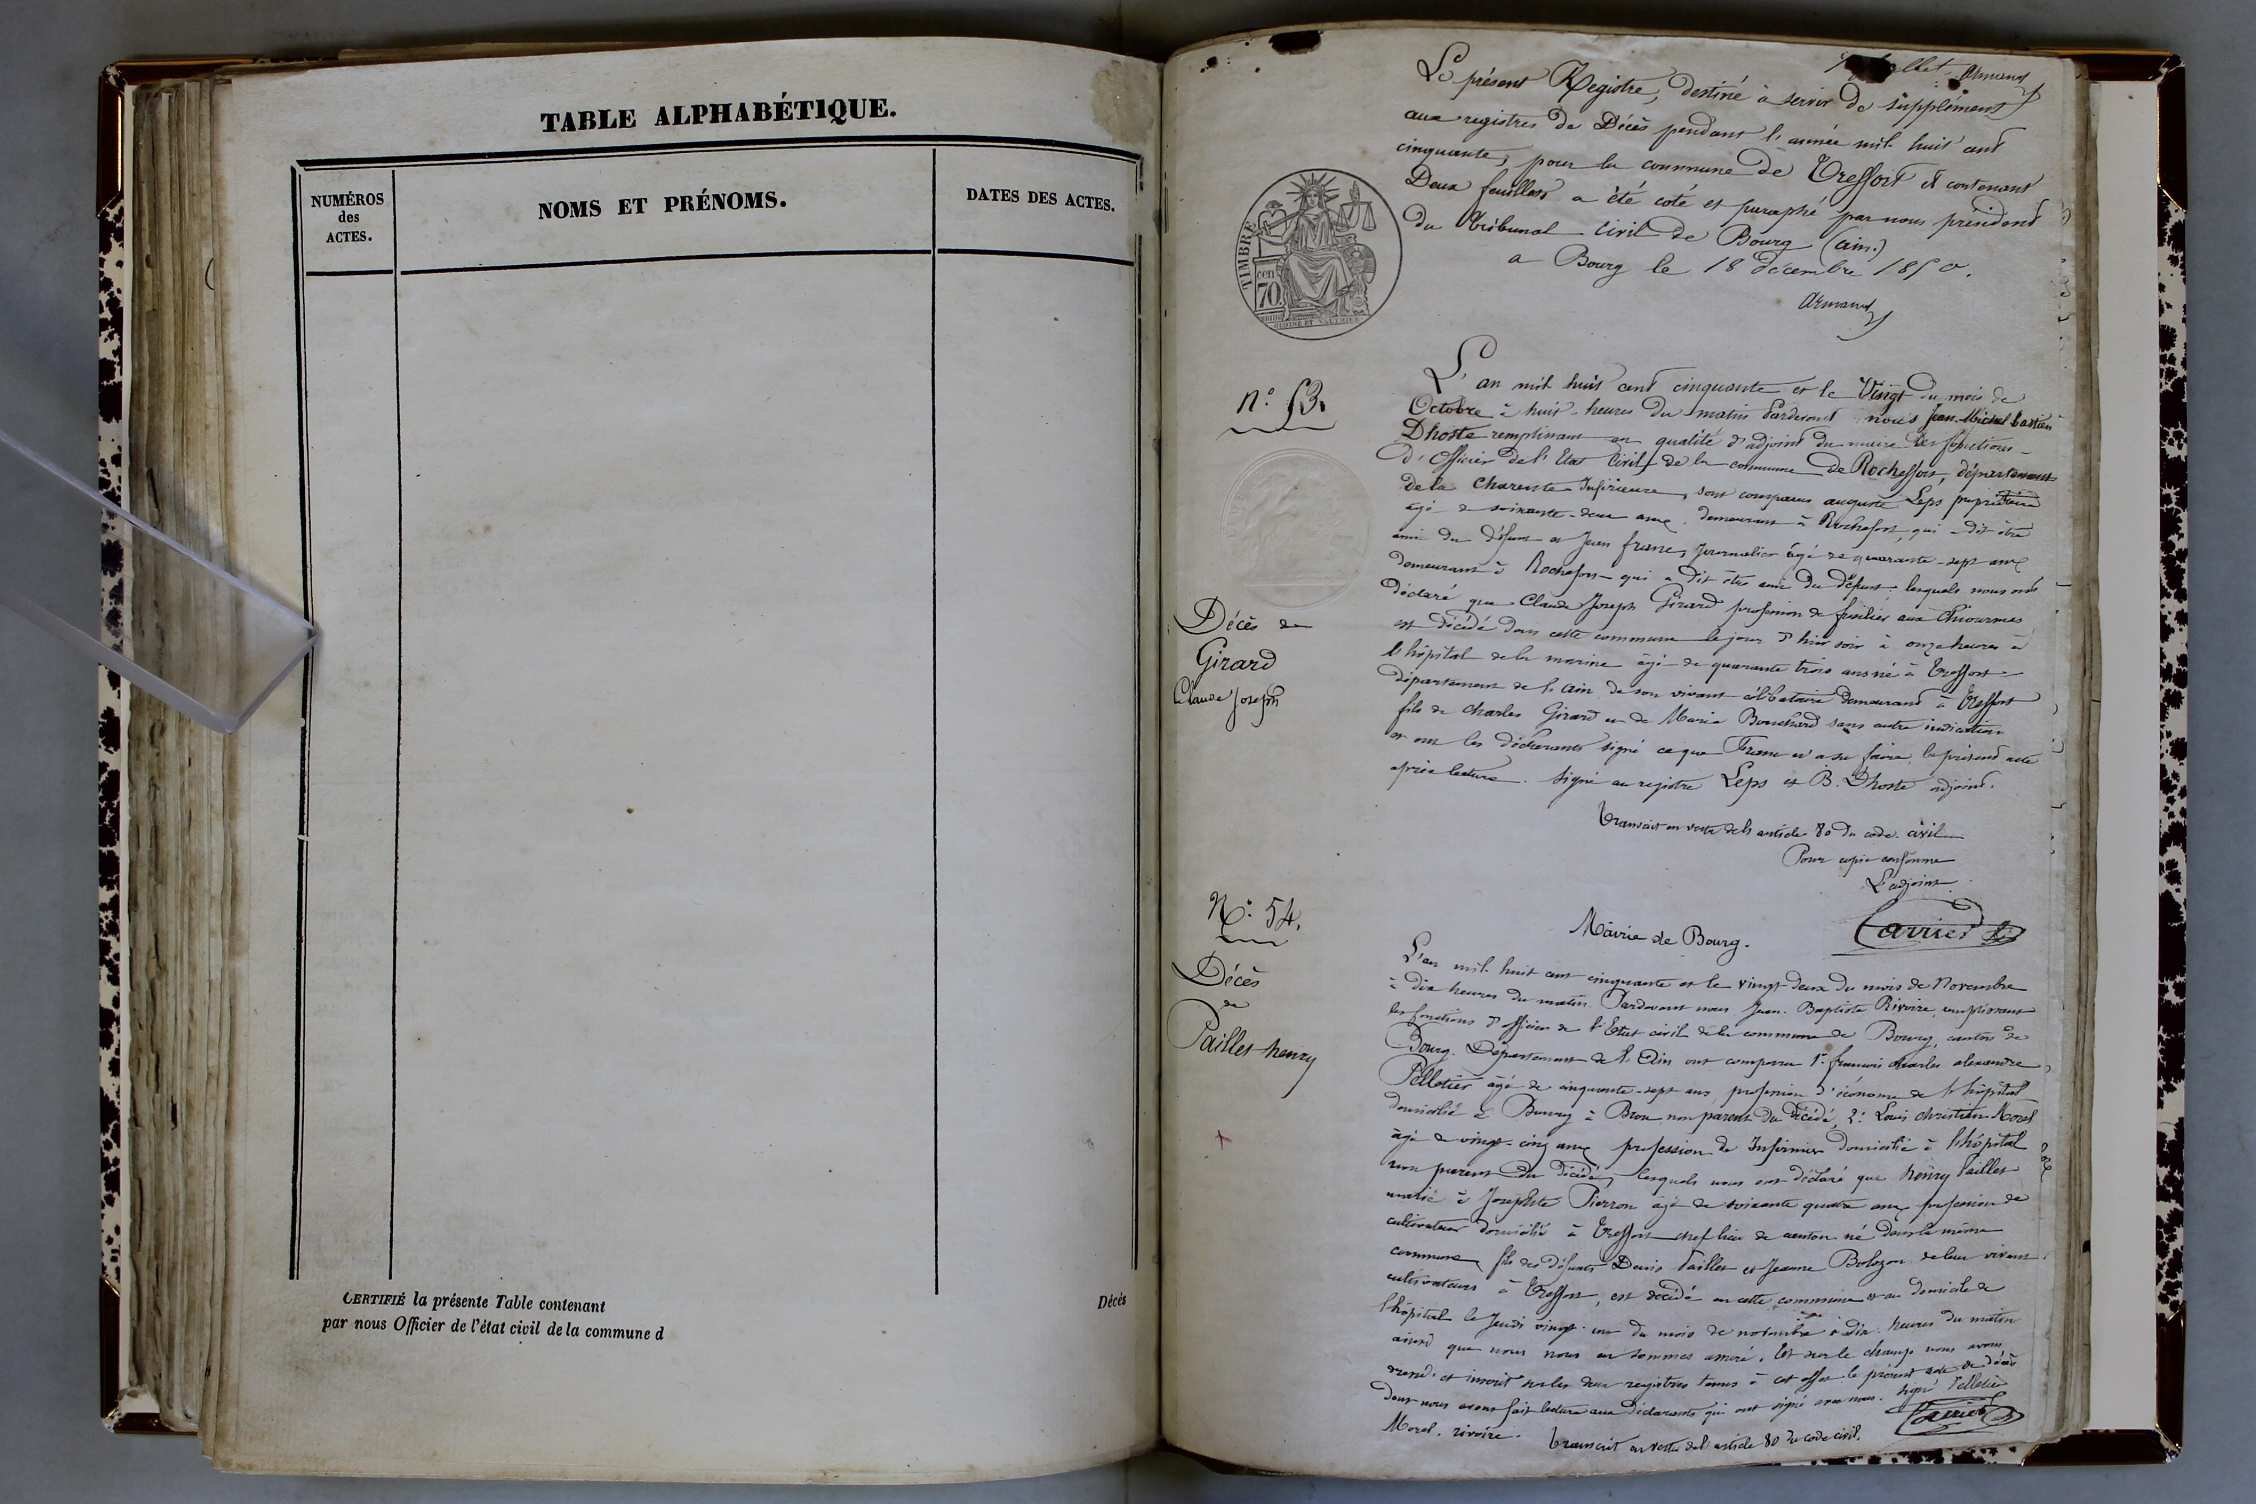 TABLE ALPHABÉTIQUE.
NUMÉROS
des
ACTES.
NOMS ET PRÉNOMS.
DATES DES ACTES.
CERTIFIÉ la présente Table contenant
Décès
par nous Officier de l'état civil de la commune d
Armand
Le présent Registre, destiné à servir de supplément
aux registres de Décès pendant l'année mil huit cent
cinquante, pour la commune de Treffort et contenant
Deux feuillets a été coté et paraphé par nous président
du Tribunal Civil de Bourg (ain.)
a Bourg le 18 décembre 1850.
Armand
TIMBRE
cen
70
n.° 53.
Décès de
Girard
Claude Joseph
L'an mil huit cent cinquante et le Vingt du mois de
Octobre à huit heures du matin Pardevant nous Jean Michel Bastien
Dhoste remplissant en qualité d'adjoint du maire les fonctions
d'Officier de l'Etat Civil de la commune de Rochefort, département
de la Charente Inférieure, sont comparus auguste Leps propriétaire
âgé de soixante-deux ans, demeurant à Rochefort, qui a dit être
ami du défunt et Jean franc, journalier âgé de quarante-sept ans
demeurant à Rochefort qui a dit être ami du défunt, lesquels nous ont
déclaré que Claude Joseph Girard profession de fusilier aux Chiourmes
est décédé dans cette commune le jour d'hier soir à onze heures à
l'hôpital de la marine âgé de quarante trois ans né à Treffort
département de l'ain de son vivant célibataire demeurant à Treffort
fils de Charles Girard et de Marie Bouchard sans autre indication
et ont les déclarants signé ce que Franc n'a su faire le présent acte
après lecture. Signé au registre Leps et B. Dhoste adjoint.
Transcrit en vertu de l'article 80 du code civil
Pour copie conforme
L'adjoint
Carrier
N.° 54.
Décès
de
Paillet henry
Mairie de Bourg.
L'an mil huit cent cinquante et le vingt-deux du mois de Novembre
à dix heures du matin Pardevant nous Jean-Baptiste Rivoire, remplissant
les fonctions d'officier de l'Etat civil de la commune de Bourg, canton de
Bourg, Département de l'Ain ont comparu 1° francois charles alexandre
Pelletier âgé de cinquante-sept ans, profession d'économe de l'hôpital
domicilié à Bourg à Brou non parent du décédé, 2° Louis christien Morel
âgé de vingt-cinq ans profession de Infirmier domicilié à l'hôpital
non parent du décédé, lesquels nous ont déclaré que henry Paillet
marié à Josephte Pierron âgé de soixante quatre ans profession de
cultivateur domicilié à Treffort chef lieu de canton né dans la même
commune, fils des défunts Denis Paillet et Jeanne Bolozon de leur vivant
cultivateurs à Treffort, est décédé en cette commune et au domicile de
l'hôpital le Jeudi vingt-un du mois de novembre à dix heures du matin
ainsi que nous nous en sommes assuré. Et sur le champ nous avons
et inscrit sur les deux registres tenus à cet effet le présent acte de décès
dont nous avons fait lecture aux déclarants qui ont signé avec nous. Signé Pelletier
Morel. rivoire. Transcrit en vertu de l'article 80 du code civil.
Carrier